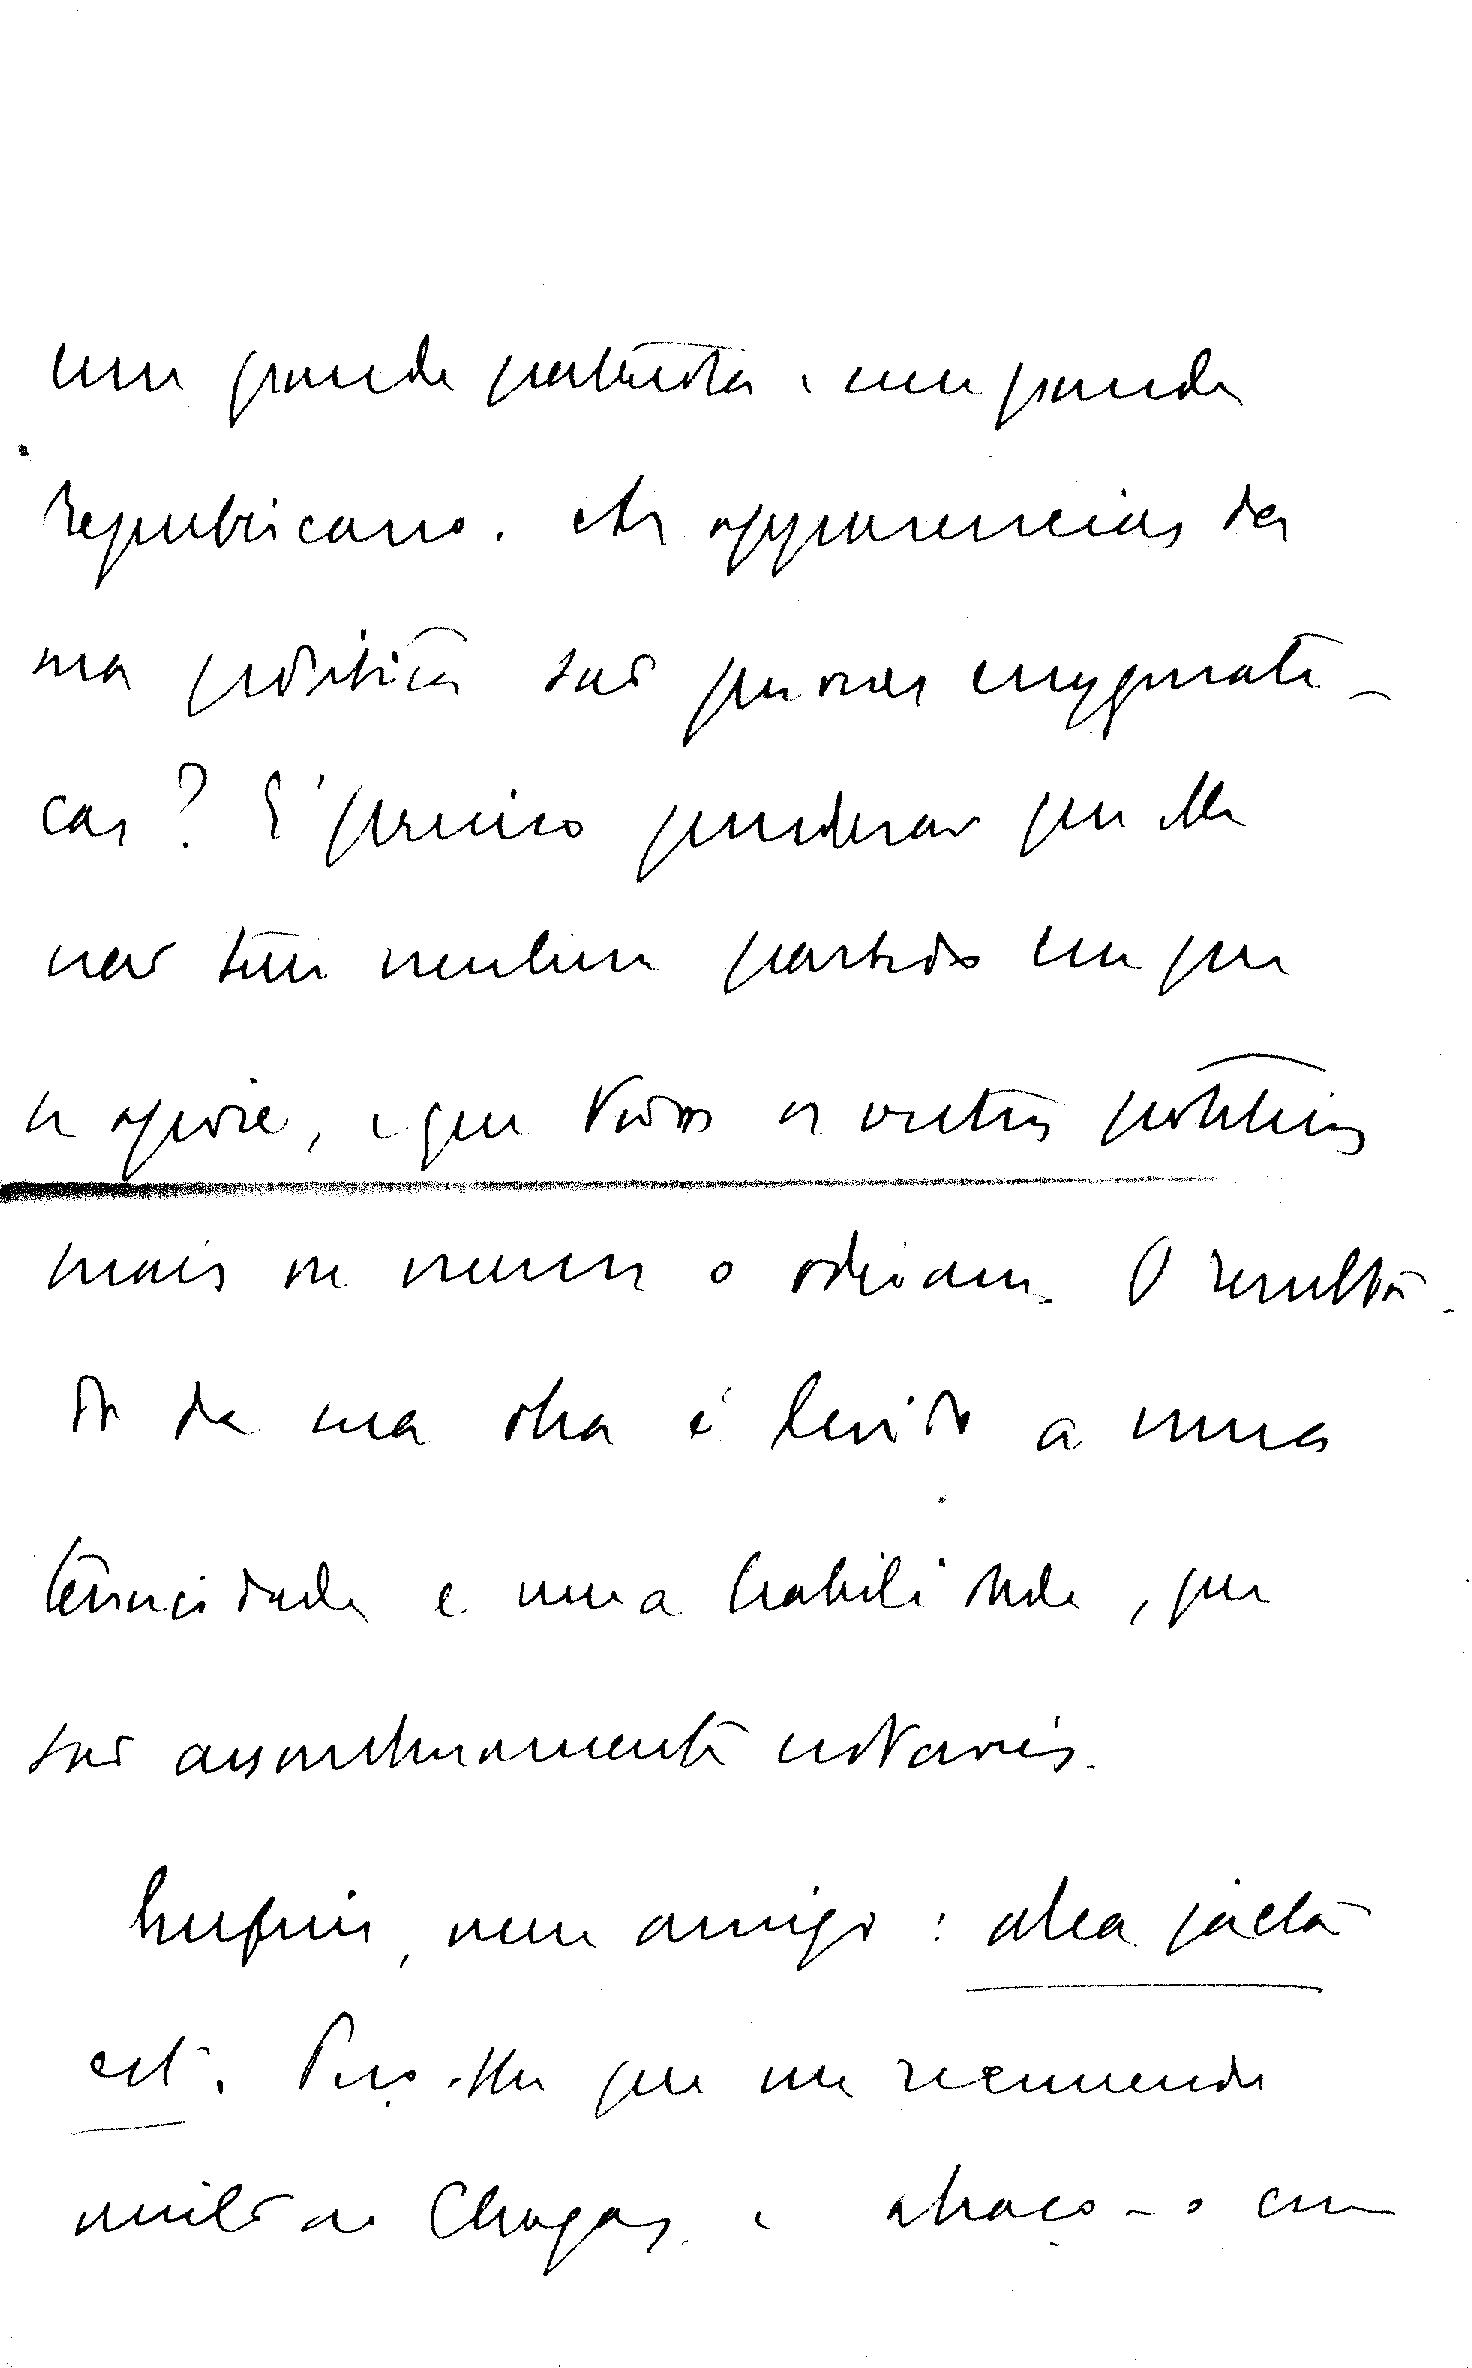 um grande patriota e um grande
republicano. As apparencias da
sua politica são por vezes enygmati-
cas? É preciso ponderar que elle
não tem nenhum partido em que
se apoie, e que todos os outros politicos
mais ou menos o odeiam. O resulta-
do da sua obra é devido a uma
tenacidade e uma habilidade, que
são assombrosamente notaveis.
Emfim, meu amigo: alea jacta
est. Peço-lhe que me recommende
muito ao Chagas, e abraço-o com